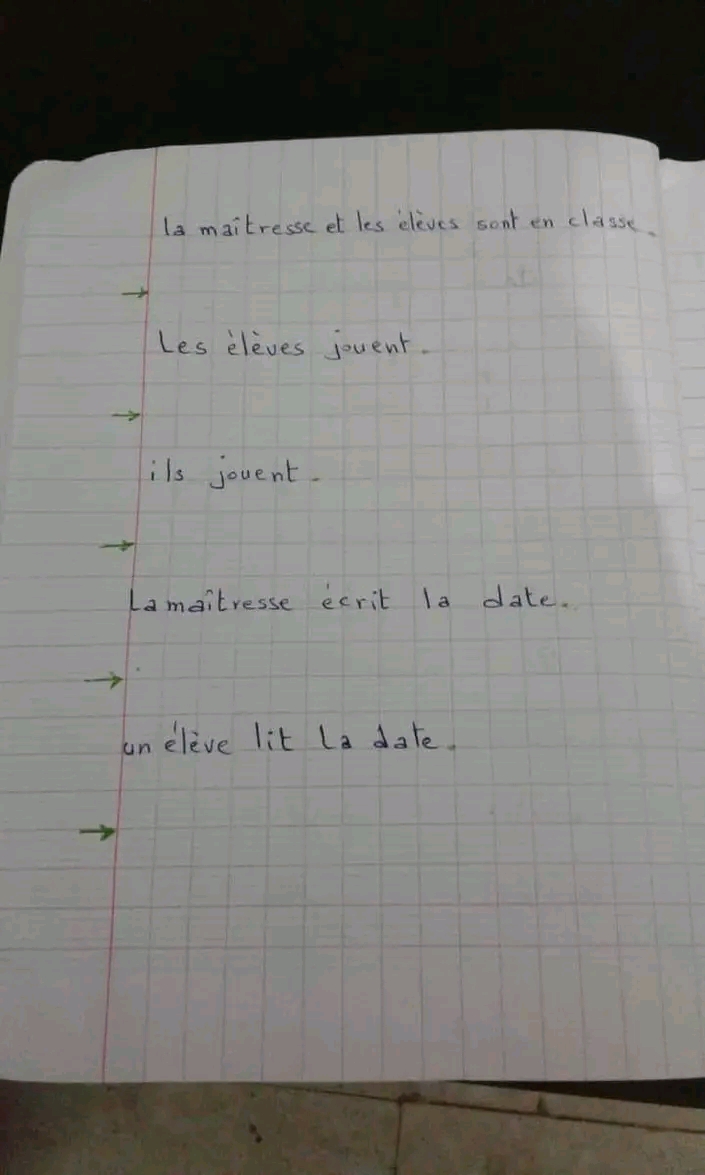 la maîtresse et les élèves sont en classe.
Les élèves jouent.
ils jouent.
La maîtresse écrit la date.
un élève lit la date.